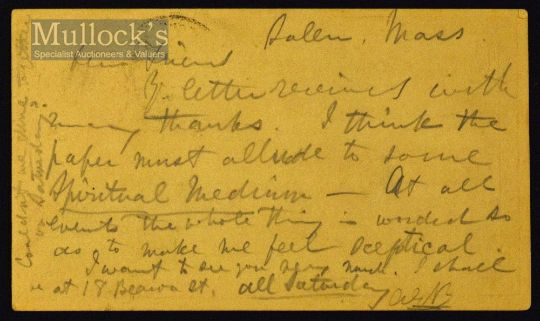 Mullock's
Specialist Auctioneers & Valuers
Salem, Mass.
friend
Yr. letter received with
many thanks. I think the
paper must allude to some
Spiritual Medium — At all
events the whole thing is worded so
as to make me feel sceptical.
I want to see you very much. I shall
be at 18 Beacon St. all Saturday
Couldn't we dine together
on Saturday?